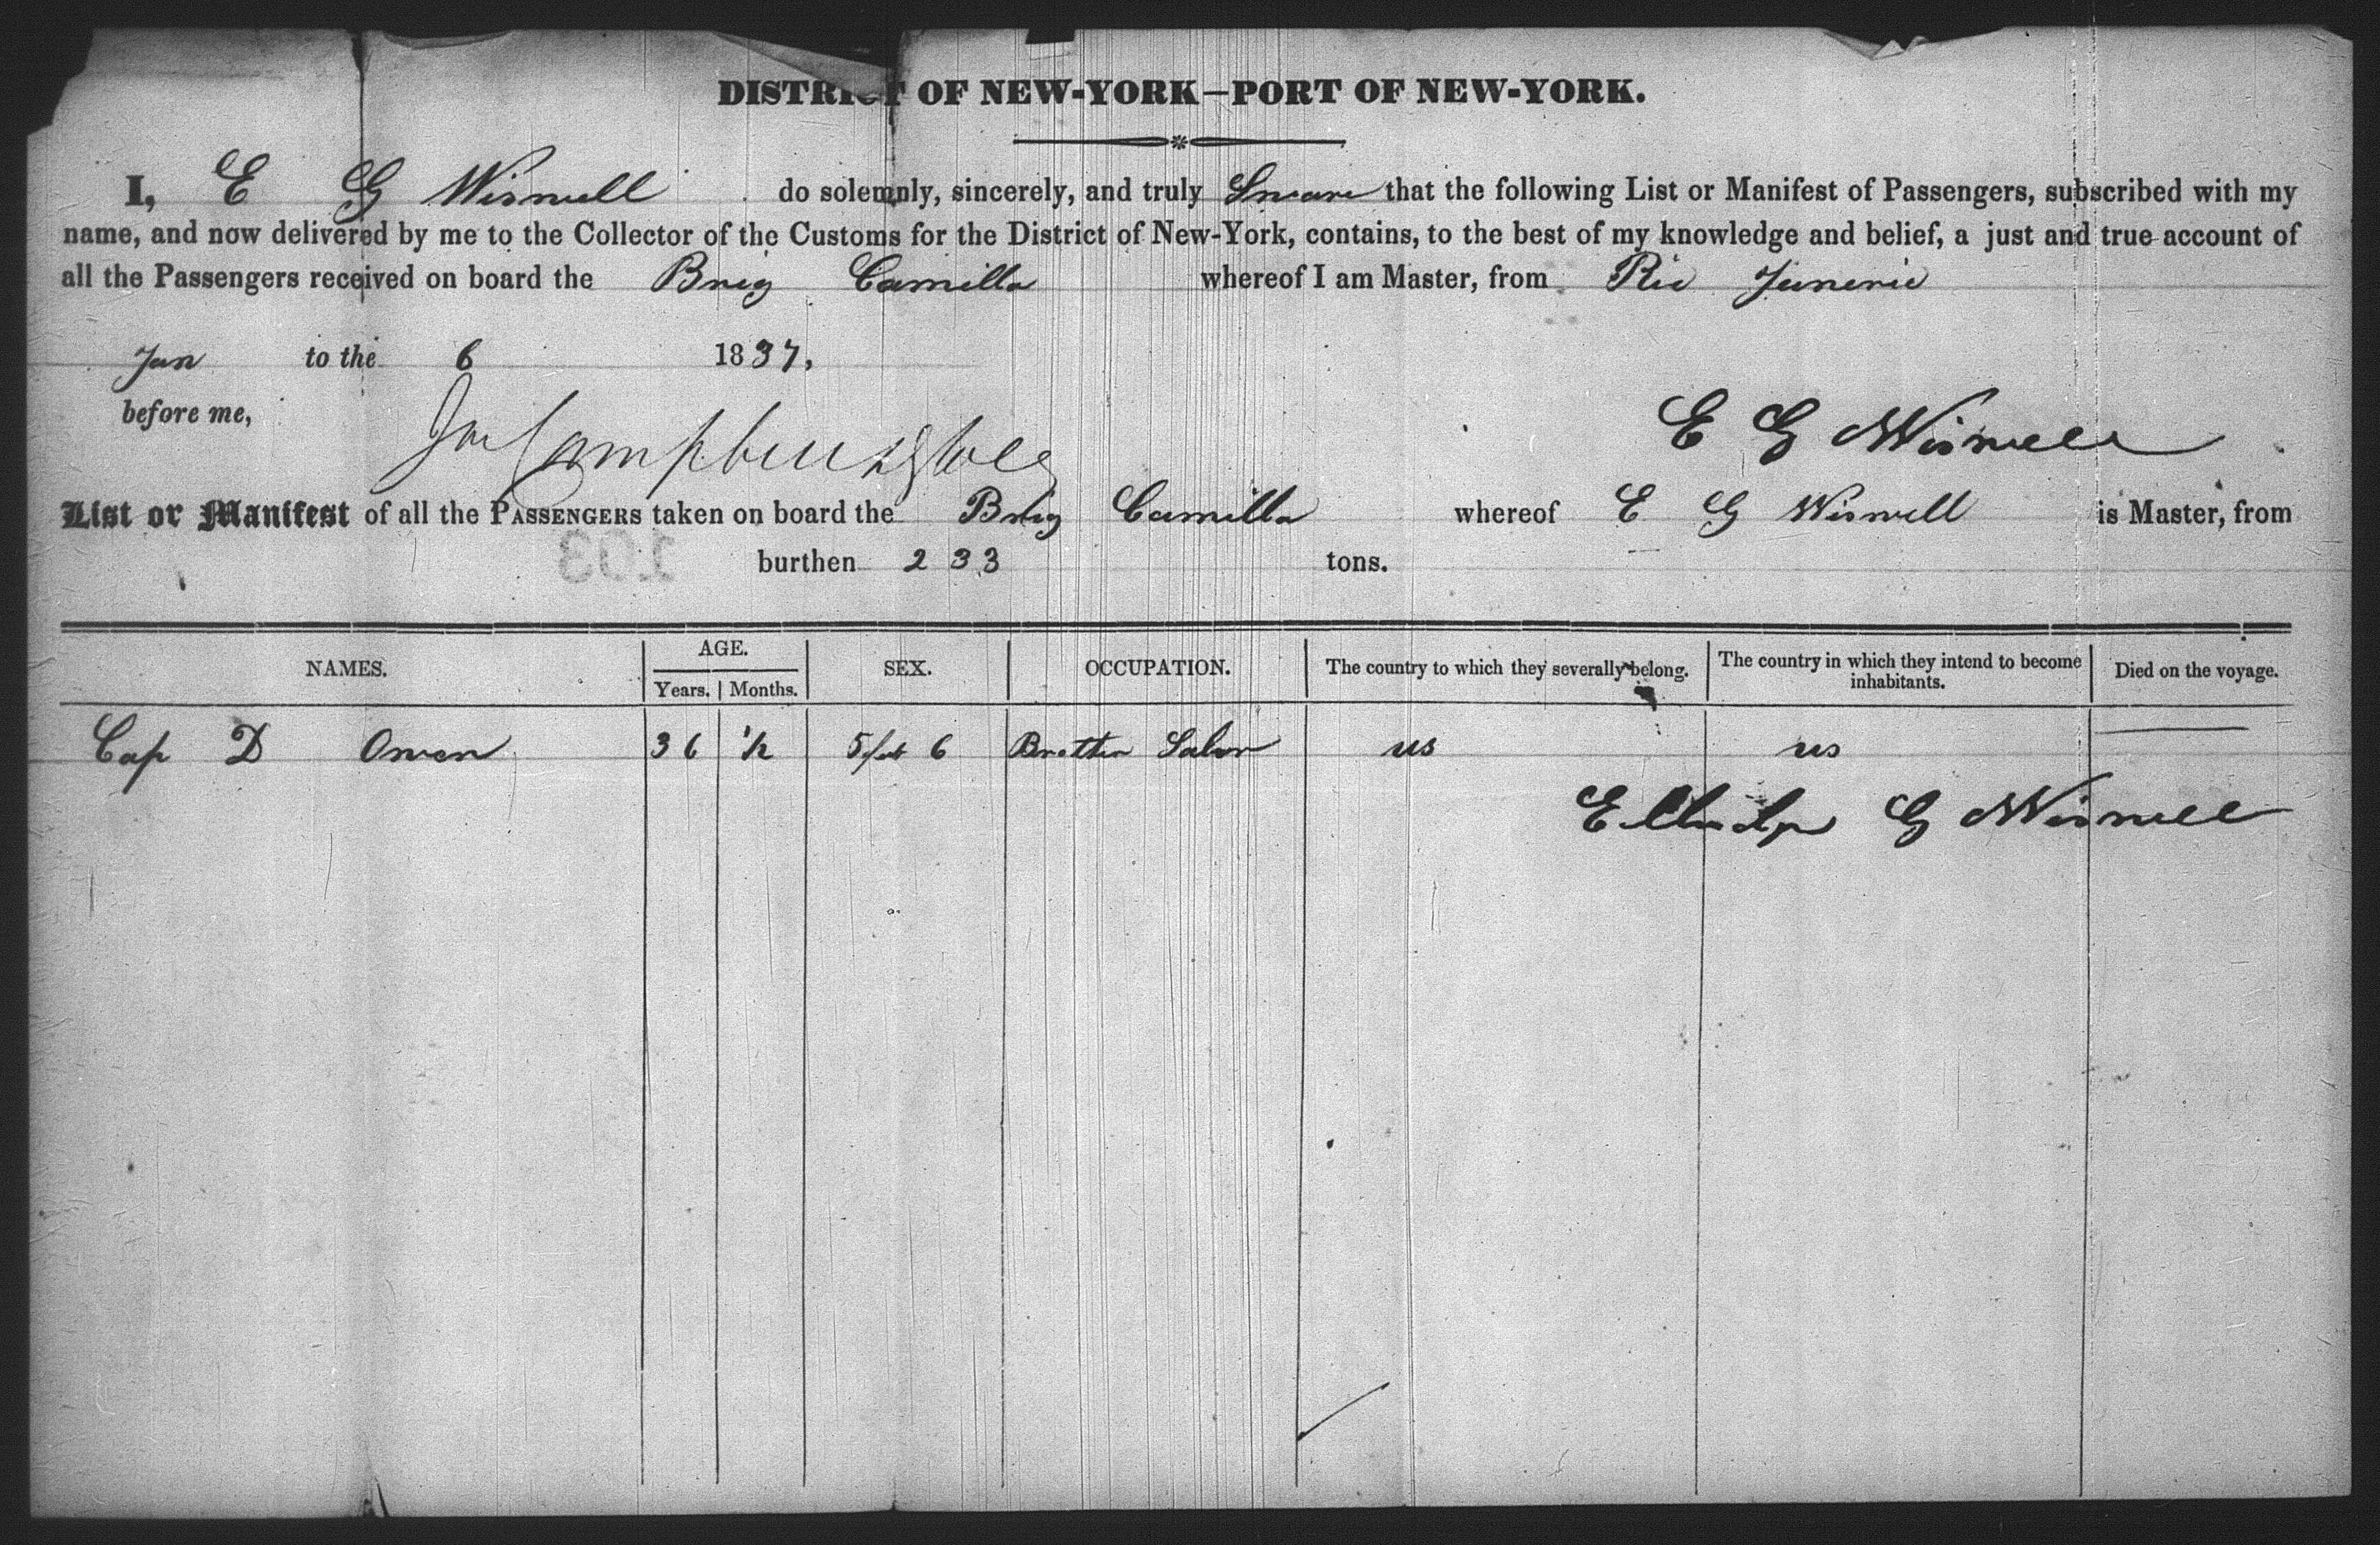 DISTRICT OF NEW-YORK—PORT OF NEW-YORK.
I, E G Wiswell do solemnly, sincerely, and truly Sware that the following List or Manifest of Passengers, subscribed with my
name, and now delivered by me to the Collector of the Customs for the District of New-York, contains, to the best of my knowledge and belief, a just and true account of
all the Passengers received on board the Brig Camilla whereof I am Master, from Rio Janerio
Jan to the 6 1837,
before me,
E G Wiswell
List or Manifest of all the PASSENGERS taken on board the Brig Camilla whereof E G Wiswell is Master, from
103
burthen 233 tons.
NAMES. AGE. SEX. OCCUPATION. The country to which they severally belong. The country in which they intend to become inhabitants. Died on the voyage.
Years. Months.
Cap D Owen 36 1/2 5 feet 6 us us
G Wiswell